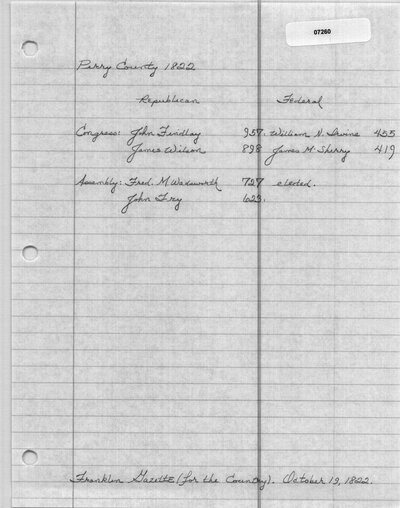 07260
Perry County 1822
Republican Federal
Congress: John Findlay 957. William N. Irvine 455
James Wilson 898 James M. Sherry 419
Assembly: Fred. M. Wadsworth 727 elected.
John Fry 623.
Franklin Gazette (for the Country). October 19, 1822.